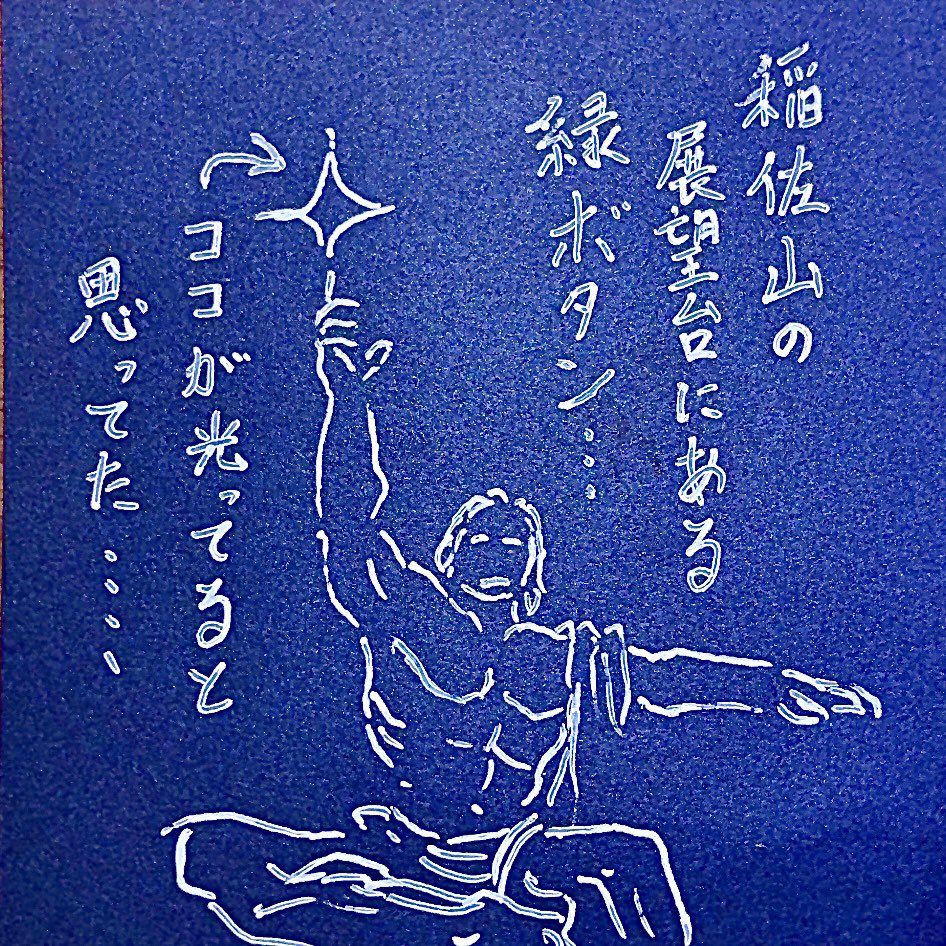 稲佐山の
展望台にある
緑ボタン…
ココが光ってると
思ってた…